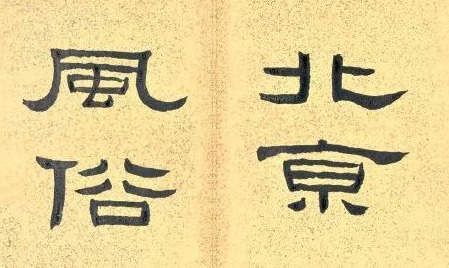 北京
風俗